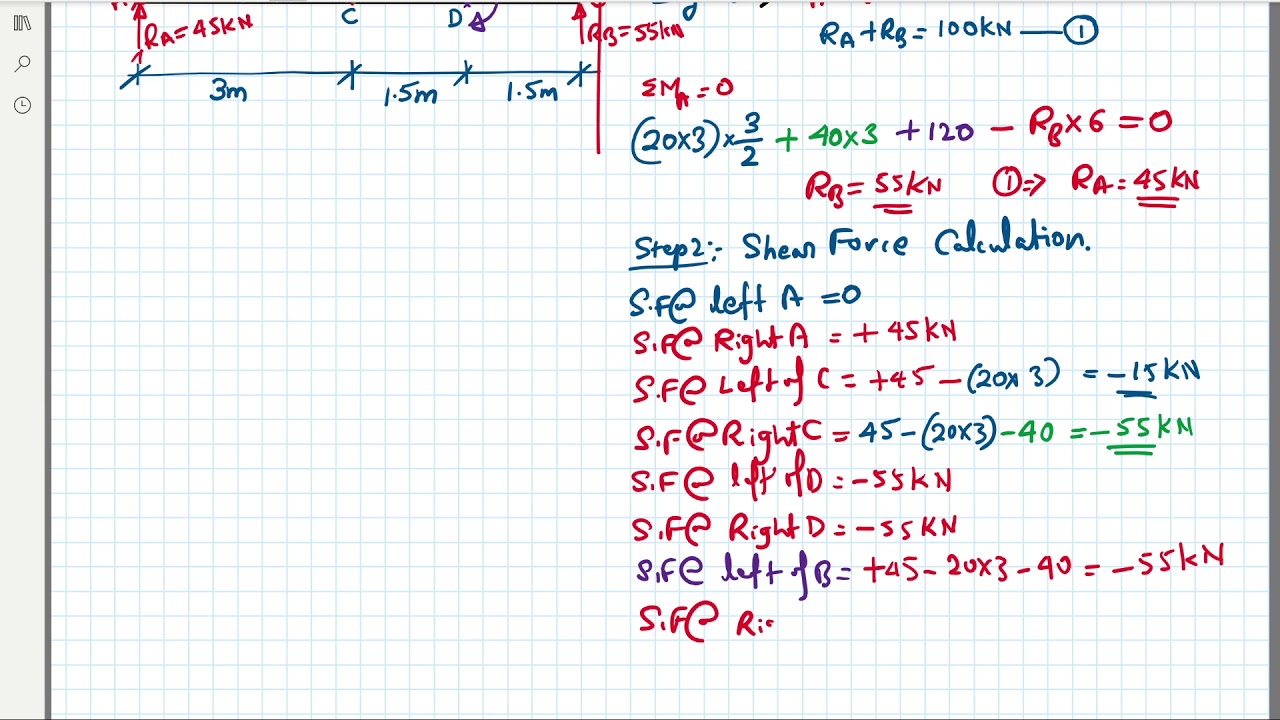 RA=45KN C D RB=55KN
RA+RB=100KN ①
3m 1.5m 1.5m
ΣMA=0
(20×3)×3/2 + 40×3 +120 - RB×6=0
RB=55KN ①⇒ RA=45KN
Step2:- Shear Force Calculation.
S.F@ left A =0
S.F@ Right A = +45KN
S.F@ Left of C = +45-(20×3) = -15KN
S.F@ Right C = 45-(20×3)-40 = -55KN
S.F@ left of D = -55KN
S.F@ Right D = -55KN
S.F@ left of B = +45-20×3-40 = -55KN
S.F@ Ri